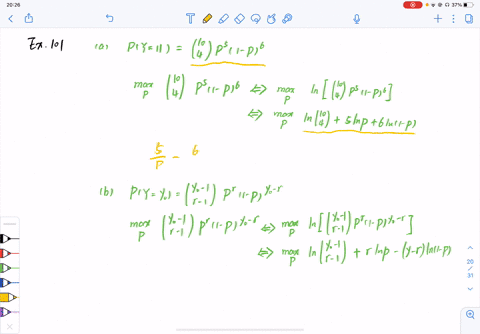 20:26
37%
Ex.101 (a) P(Y=11) = (10 4) p^5 (1-p)^6
max p (10 4) p^5 (1-p)^6 ⟺ max p ln[(10 4) p^5 (1-p)^6]
⟺ max p ln(10 4) + 5 ln p + 6 ln(1-p)
5/p - 6
(b) P(Y=y₀) = (y₀-1 r-1) p^r (1-p)^{y₀-r}
max p (y₀-1 r-1) p^r (1-p)^{y₀-r} ⟺ max p ln[(y₀-1 r-1) p^r (1-p)^{y₀-r}]
⟺ max p ln(y₀-1 r-1) + r ln p - (y-r) ln(1-p)
20
/
31